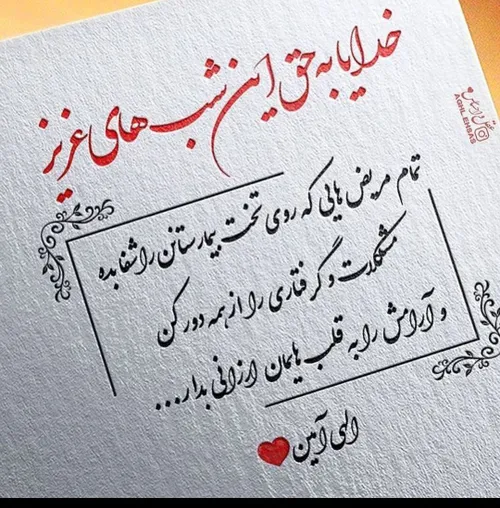 خدایا به حق این شب های عزیز
تمام مریض هایی که روی تخت بیمارستانن را شفا بده
مشکلات و گرفتاری را از همه دور کن
و آرامش را به قلب هایمان ارزانی بدار...
الهی آمین
AGHL.EHSAS